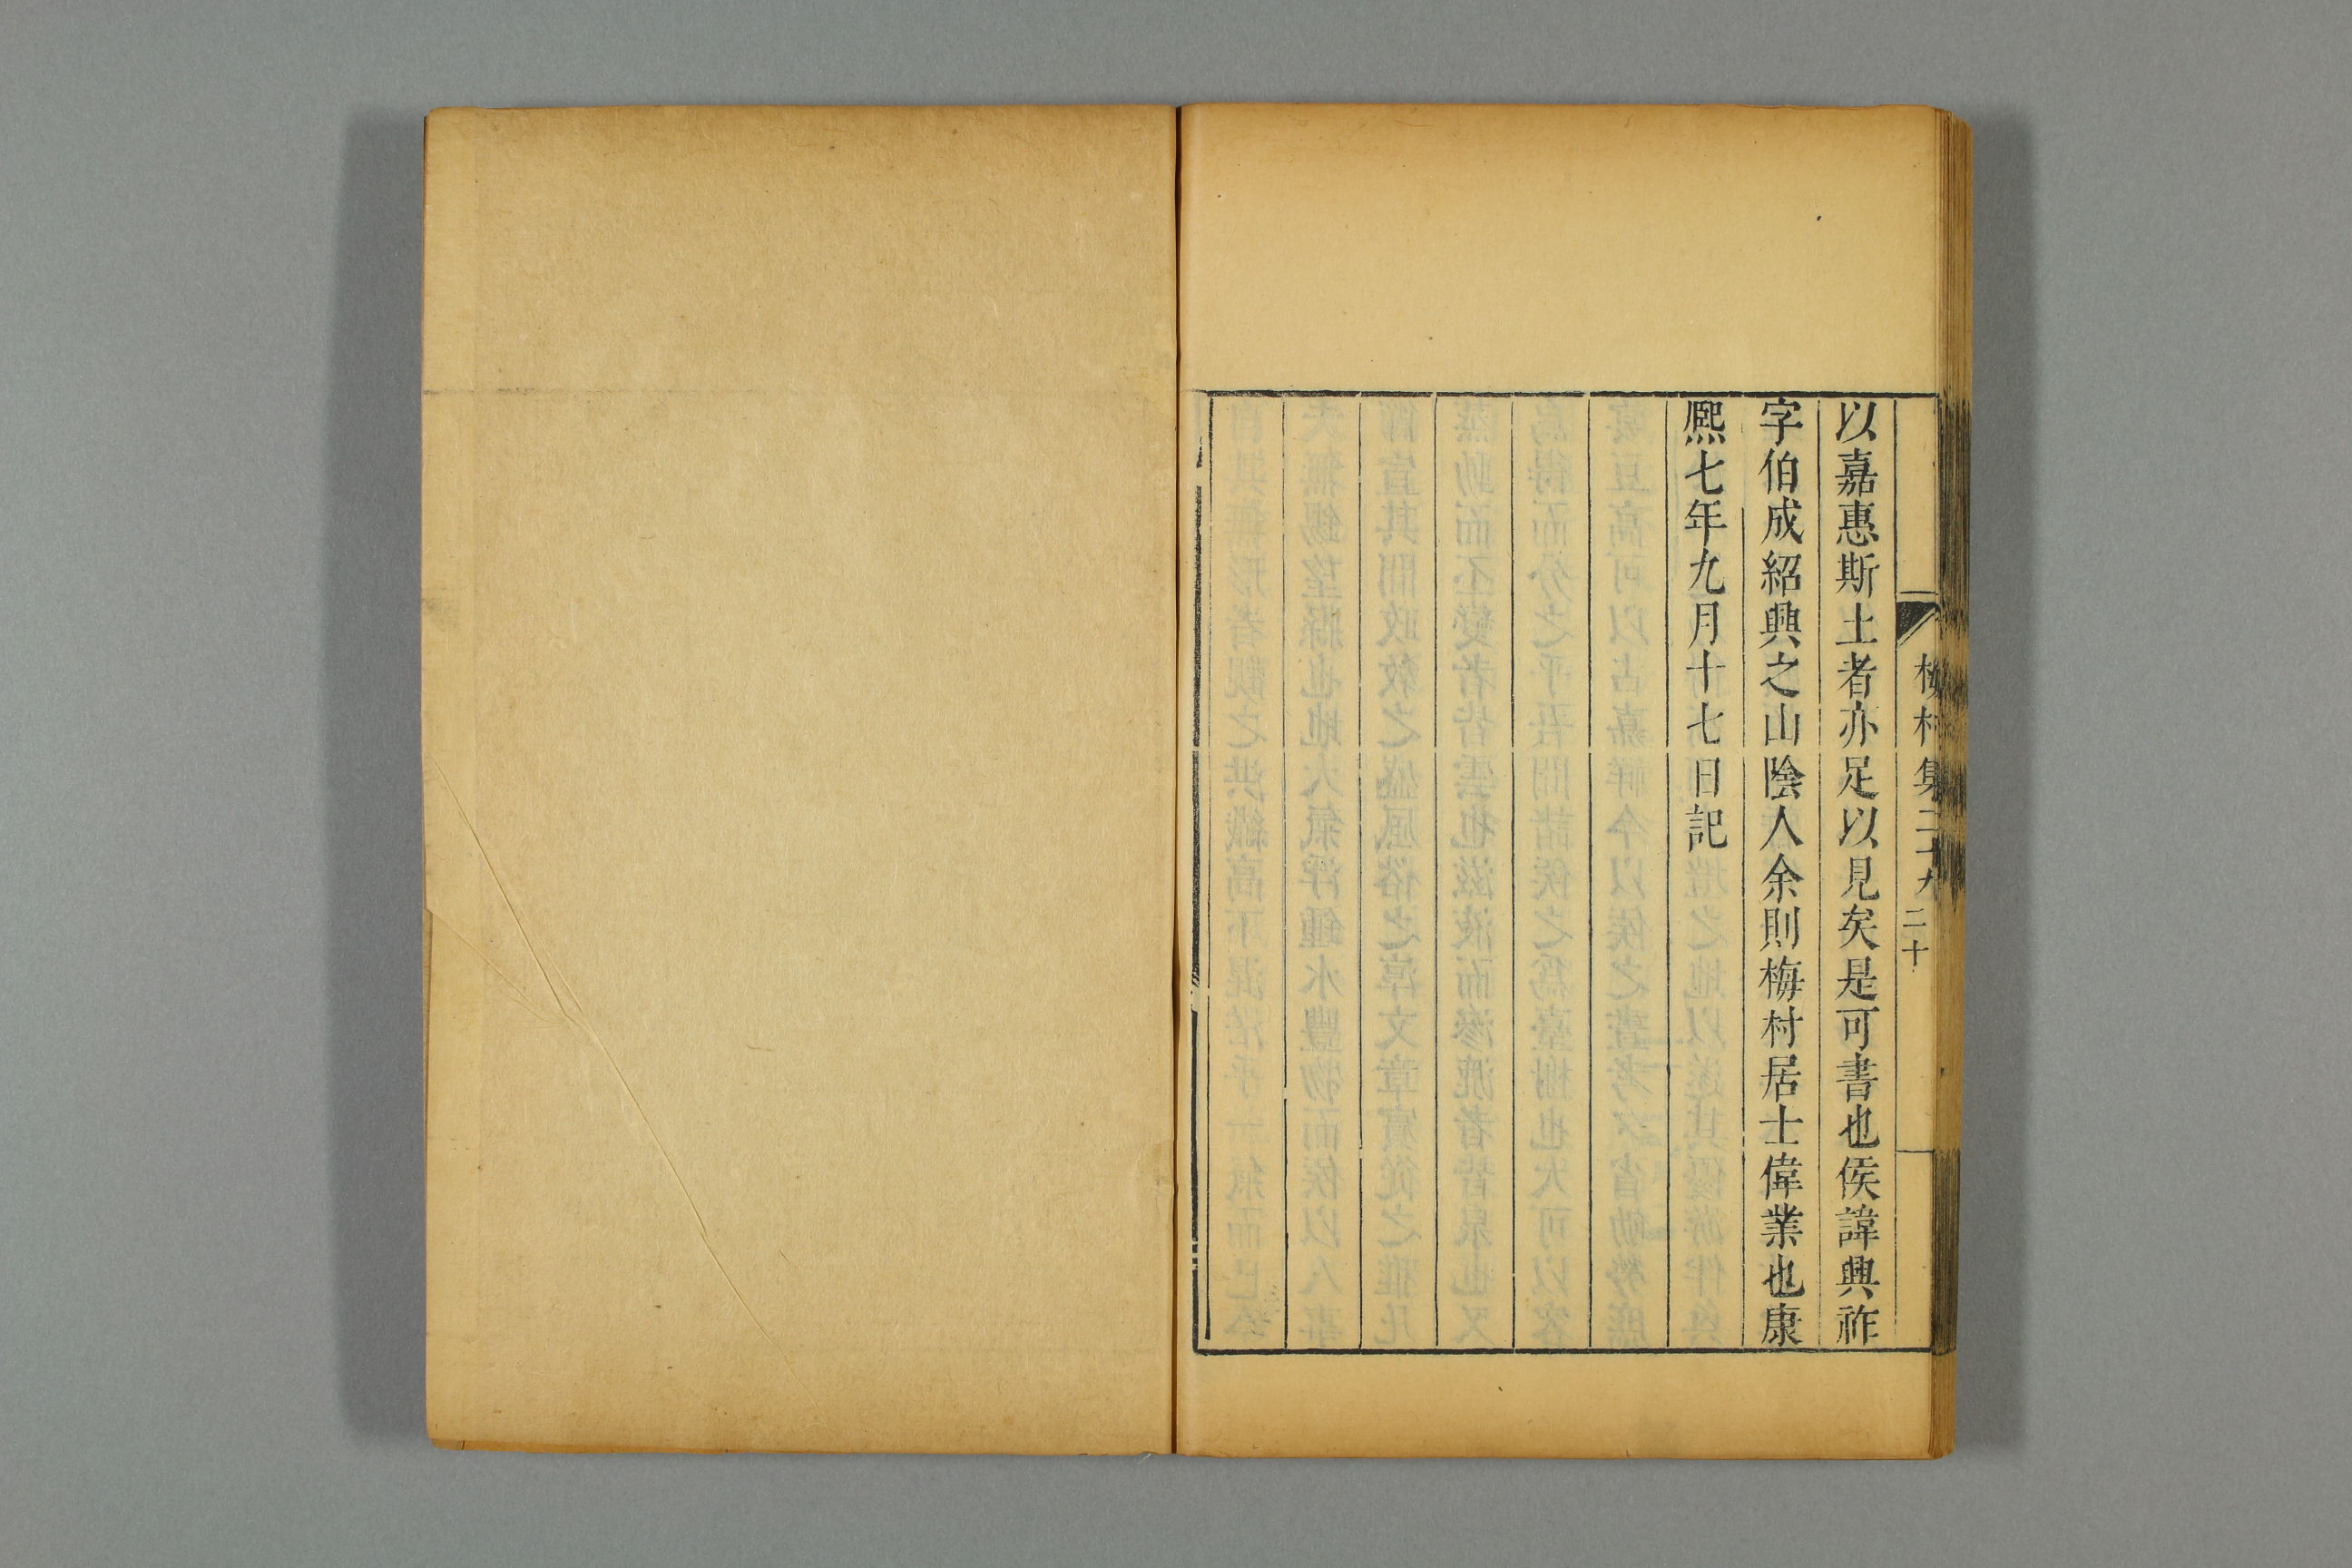 以嘉惠斯土者亦足以見矣是可書也侯諱興祚
字伯成紹興之山陰人余則梅村居士偉業也康
熈七年九月十七日記
梅村集二十九
二十